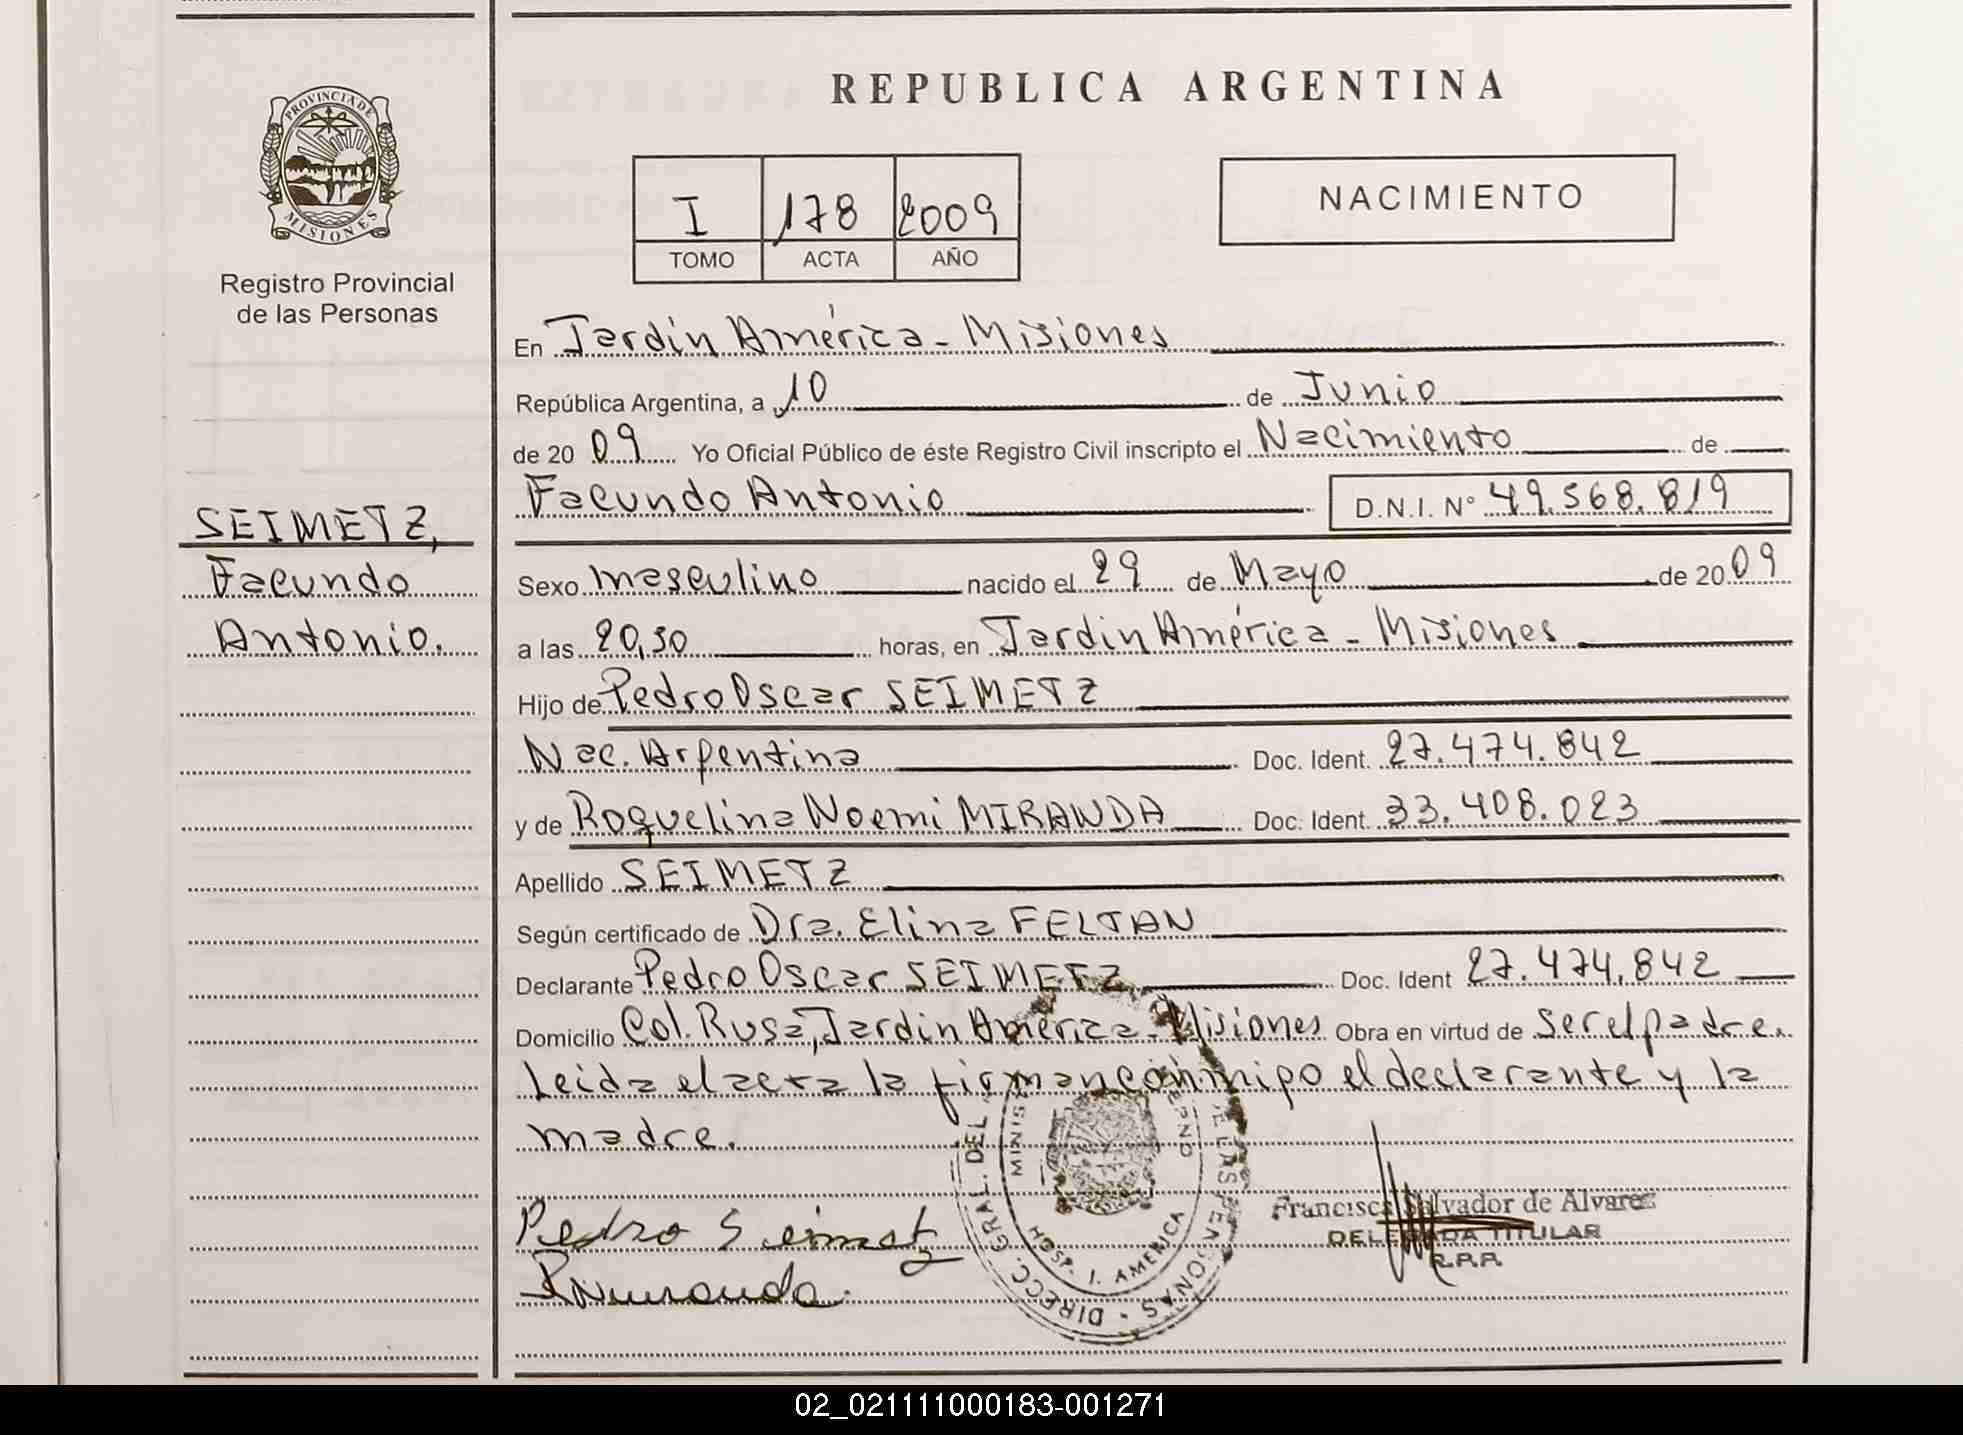 PROVINCIA DE
MISIONES
Registro Provincial
de las Personas
SEIMETZ,
Facundo
Antonio.
REPUBLICA ARGENTINA
I 178 2009
TOMO ACTA AÑO
NACIMIENTO
En Jardín América - Misiones
República Argentina, a 10 de Junio
de 2009 Yo Oficial Público de éste Registro Civil inscripto el Nacimiento de
Facundo Antonio D.N.I. N° 49.568.819
Sexo masculino nacido el 29 de Mayo de 2009
a las 20,30 horas, en Jardín América - Misiones
Hijo de Pedro Oscar SEIMETZ
Nac. Argentina Doc. Ident. 27.474.842
y de Roquelina Noemi MIRANDA Doc. Ident. 33.408.023
Apellido SEIMETZ
Según certificado de Dra. Elina FELTAN
Declarante Pedro Oscar SEIMETZ Doc. Ident 27.474.842
Domicilio Col. Rusa, Jardín América - Misiones Obra en virtud de ser el padre.
Leida el acta la firman conmigo el declarante y la
madre.
Pedro Seimetz
DIRECC. GRAL. DEL DE LAS PERSONAS
HOSP. J. AMERICA
Francisca Salvador de Alvarez
DELEGADA TITULAR
R.P.P.
02_021111000183-001271